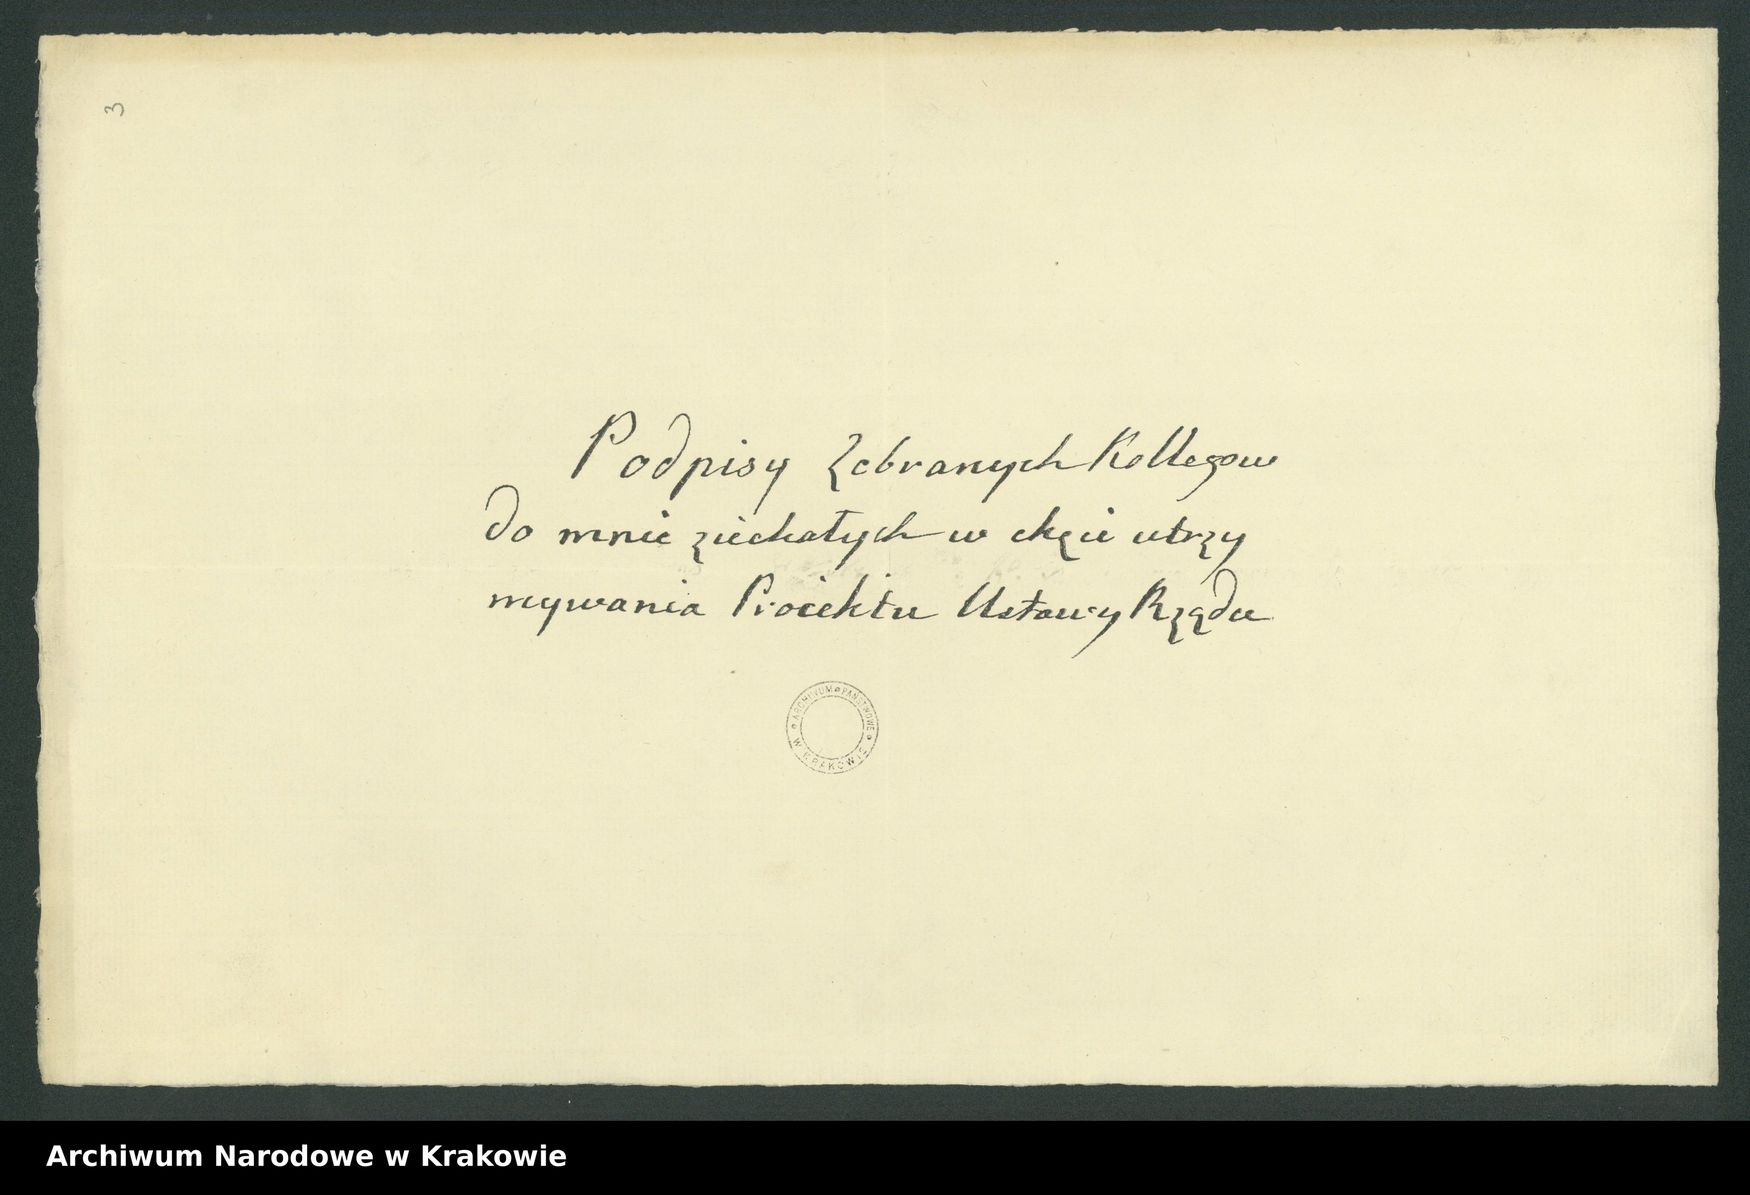 3
Podpisy Zebranych Kollegow
do mnie ziechałych w chęci utrzy
mywania Proiektu Ustawy Rządu
ARCHIWUM PAŃSTWOWE W KRAKOWIE
Archiwum Narodowe w Krakowie